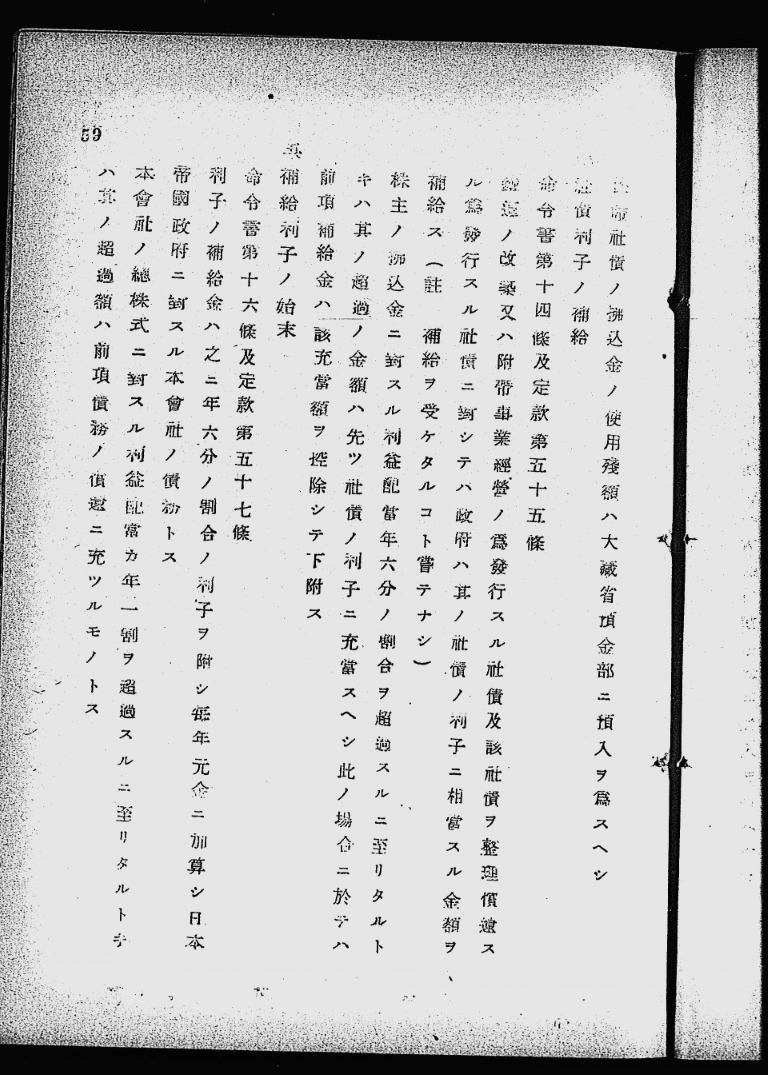 社債ノ拂込金ノ使用殘額ハ大藏省預金部ニ預入ヲ爲スヘシ
社債利子ノ補給
命令書第十四條及定款第五十五條
鐵道ノ改築又ハ附帶事業經營ノ爲發行スル社債及該社債ヲ整理償還ス
ル爲發行スル社債ニ對シテハ政府ハ其ノ社債ノ利子ニ相當スル金額ヲ
補給ス(註 補給ヲ受ケタルコト嘗テナシ)
株主ノ拂込金ニ對スル利益配當年六分ノ割合ヲ超過スルニ至リタルト
キハ其ノ超過ノ金額ハ先ツ社債ノ利子ニ充當スヘシ此ノ場合ニ於テハ
前項補給金ハ該充當額ヲ控除シテ下附ス
補給利子ノ始末
命令書第十六條及定款第五十七條
利子ノ補給金ハ之ニ年六分ノ割合ノ利子ヲ附シ每年元金ニ加算シ日本
帝國政府ニ對スル本會社ノ債務トス
本會社ノ總株式ニ對スル利益配當カ年一割ヲ超過スルニ至リタルトキ
ハ其ノ超過額ハ前項債務ノ償還ニ充ツルモノトス
59